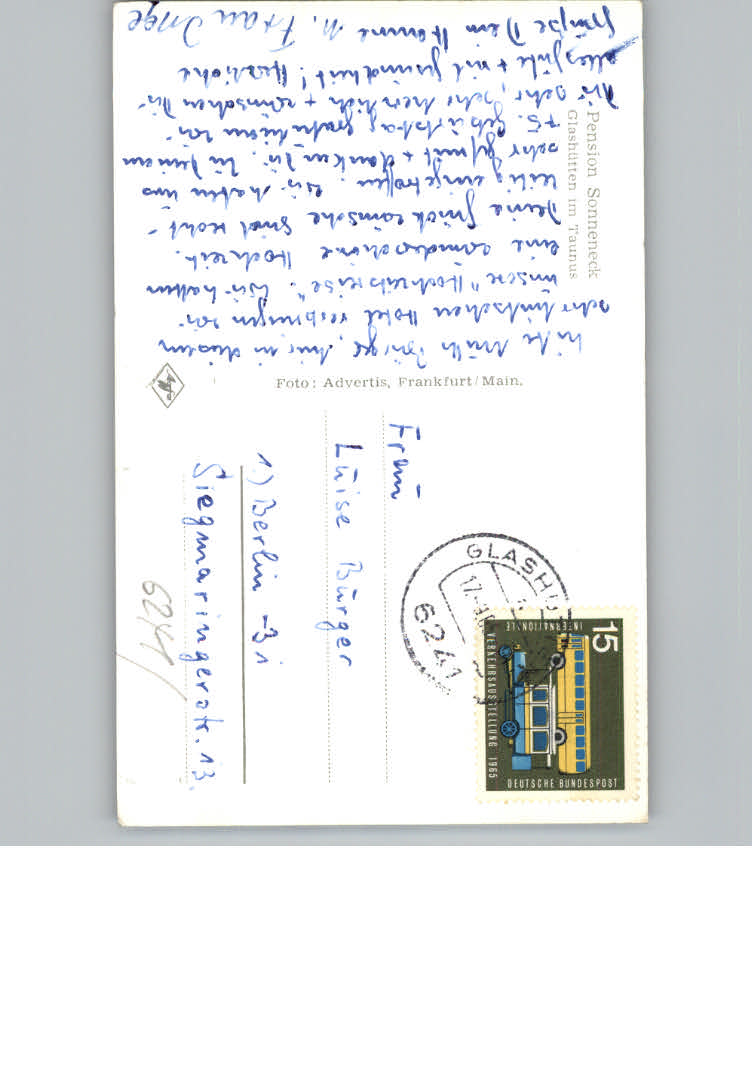 Pension Sonneneck
Glashütten im Taunus
Liebe Mutti Bürger, hier in diesem
sehr hübschen Hotel verbringen wir
unsere "Hochzeitsreise". Wir hatten
eine wunderschöne Hochzeit.
Deine Glückwünsche sind recht-
zeitig eingetroffen. Wir haben uns
sehr gefreut + danken Dir. Zu Deinem
75. Geburtstag gratulieren wir
Dir sehr, sehr herzlich + wünschen Dir
alles Gute + viel Gesundheit! Herzliche
Grüße Dein Hanne u. Frau Inge
Foto: Advertis, Frankfurt/Main.
Agfa
Frau
Luise Bürger
1.) Berlin - 31
Siegmaringerstr. 13.
6241
GLASHÜ
6241
15
INTERNATIONALE
VERKEHRSAUSSTELLUNG 1965
DEUTSCHE BUNDESPOST